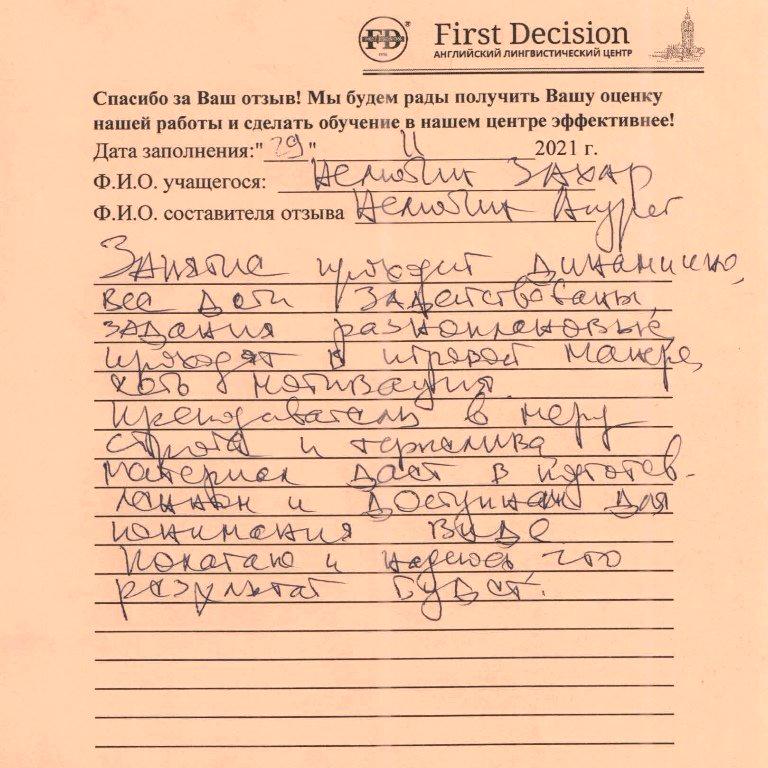 FD
First Decision
АНГЛИЙСКИЙ ЛИНГВИСТИЧЕСКИЙ ЦЕНТР
Спасибо за Ваш отзыв! Мы будем рады получить Вашу оценку
нашей работы и сделать обучение в нашем центре эффективнее!
Дата заполнения:"29" 11 2021 г.
Ф.И.О. учащегося: Нелюбин Захар
Ф.И.О. составителя отзыва Нелюбин Андрей
Занятие проходит динамично,
все дети задействованы,
задания разноплановые,
проходят в игровой манере,
есть мотивация.
Преподаватель в меру
строга и терпелива
материал даёт в
и доступном для
понимания виде
Полагаю и надеюсь что
результат будет.